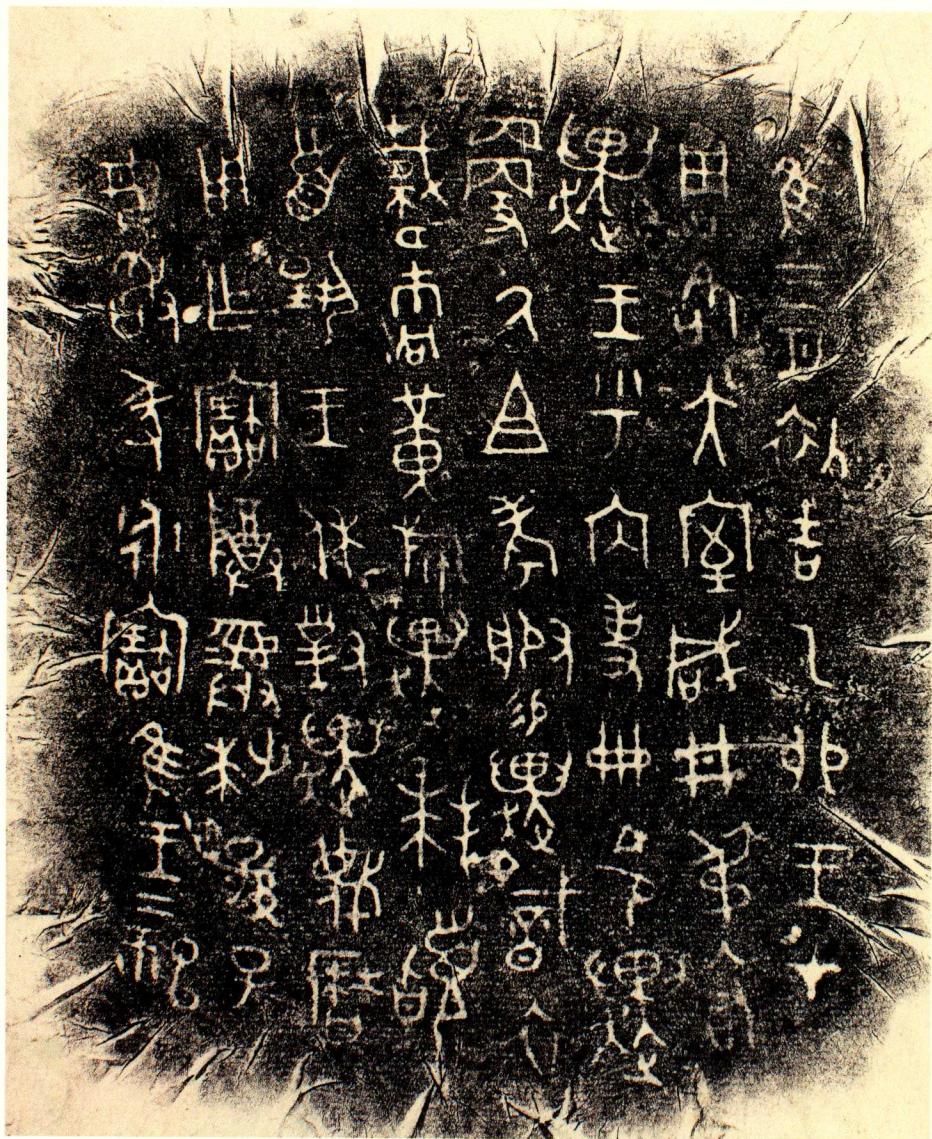 隹三月初吉乙卯王才
周各大室咸井弔入右
趩王乎內史冊令趩
更氒且考服易趩戠衣
載巿冋黃旂趩拜𩒨
首揚王休對趩蔑曆
用乍寶尊彝枼孫子
毋敢墜永寶隹王二祀